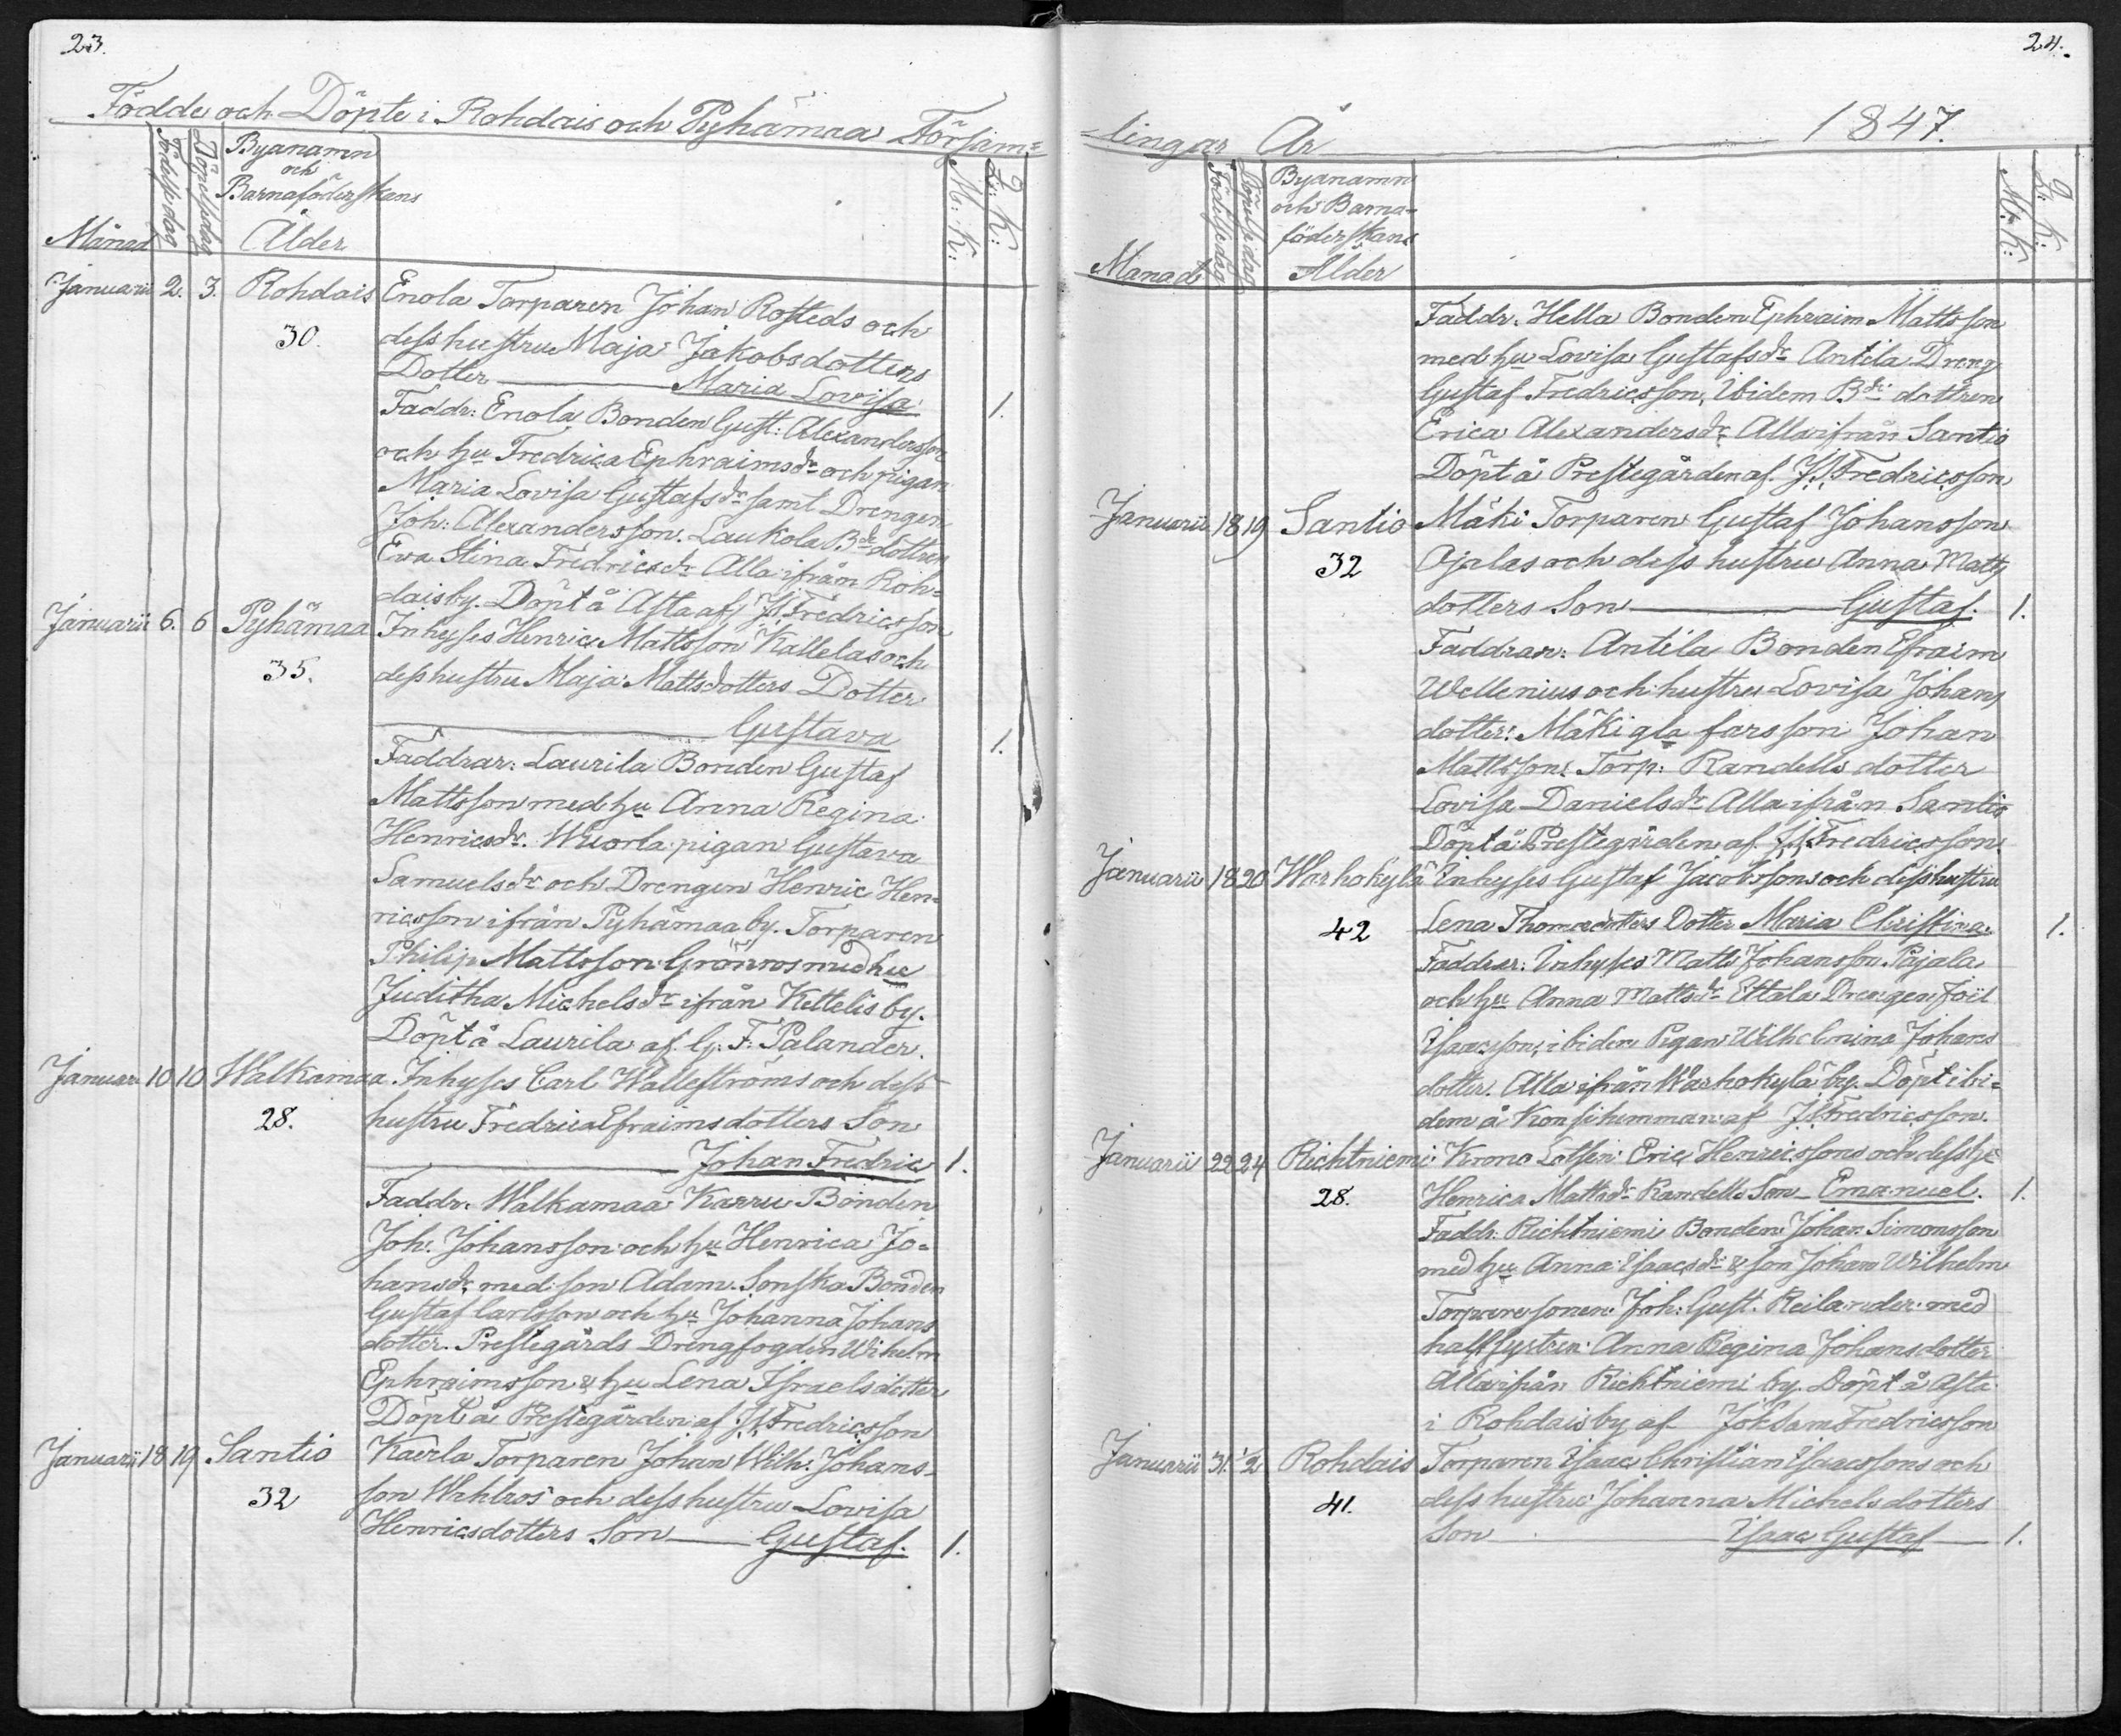 23.
Födde och Döpte i Rohdais och Pyhämaa Försam=
Månad
Födelsedag
Döpelsedag
Byanamn
och
Barnaföderskans
Ålder
M: K:
Q: K:
Januarii 2. 3. Rohdais Enola Torparen Johan Rosteds och
30. dess hustru Maja Jakobsdotters
Dotter Maria Lovisa 1.
Faddr: Enola Bonden Gust: Alexandersson
och hu Fredrica Ephraimsdr och pigan
Maria Lovisa Gustafsdr samt Drengen
Joh: Alexandersson. Laukola Bde dottren
Eva Stina Fredricsdr Alla ifrån Roh=
daisby. Döpt å Asta af J. Fredricsson
Januarii 6. 6 Pyhämaa Inhyses Henric Mattsson Kallelas och
35. dess hustru Maja Mattsdotters Dotter
Gustava 1.
Faddrar: Laurila Bonden Gustaf
Mattsson med hu Anna Regina
Henricsdr. Wuorla pigan Gustava
Samuelsdr och Drengen Henric Hen=
ricsson ifrån Pyhämaa by. Torparen
Philip Mattsson Grönros med hu
Juditha Michelsdr ifrån Kettelis by.
Döpt å Laurila af G. F. Palander.
Januari 10 10 Walkamaa Inhyses Carl Walleströms och dess
28. hustru Fredrica Efraimsdotters Son
Johan Fredric 1.
Faddr. Walkamaa Karru Bonden
Joh. Johansson och hu Henrica Jo=
hansdr med son Adam. Sonska Bonden
Gustaf Carlsson och hu Johanna Johans
dotter. Prestegårds Drengfogden Wihelm
Ephraimsson & hu Lena Israelsdotter
Döpt å Prestegården af J. Fredricsson
Januarii 18 19 Santio Kaerla Torparen Johan Wilh: Johans-
32 son Wahlros och dess hustru Lovisa
Henricsdotters Son Gustaf. 1.
24.
=lingar År 1847.
Månad
Födelsedag
Döpelsedag
Byanamn
och Barna-
föderskans
Ålder
M: K:
Q: K:
Faddr. Hella Bonden Ephraim Mattsson
med hu Lovisa Gustafsdr Antila Dreng
Gustaf Fredricsson, Ibidem Bde dottren
Erica Alexandersdr Alla ifrån Santio
Döpt å Prestegården af J. Fredricsson
Januarii 18 19 Santio Mäki Torparen Gustaf Johansson
32 Ojalas och dess hustru Anna Matts
dotters Son Gustaf. 1.
Faddrar: Antila Bonden Efraim
Wellenius och hustru Lovisa Johans
dotter: Mäki gla farsson Johan
Mattsson Torp: Randells dotter
Lovisa Danielsdr Alla ifrån Santio
Döpt å Prestegården af J. Fredricsson
Januarii 18 20 Warhokylä Inhyses Gustaf Jacobssons och dess hustru
42 Lena Thomasdotters Dotter Maria Christina. 1.
Faddrar: Inhyses Matts Johansson Pajala
och hu Anna Mattsdr Ettala Drengen Joil
Isaacsson, ibidem Pigan Wilhelmina Johans
dotter. Alla ifrån Warhokylä by. Döpt ibi=
dem å Konsi hemman af J. Fredricsson.
Januarii 22 24 Richtniemi Krono Lotsen Eric Henricssons och dess hu
28. Henrica Mattsdr Randells Son Emanuel. 1.
Faddr: Richtniemi Bonden Johan Simonsson
med hu Anna Isaacsdr & son Johan Wilhelm
Torparesonen Joh: Gust. Reilander med
halfsystren Anna Regina Johansdotter
Alla ifrån Richtniemi by. Döpt å Asta
i Rohdaisby af Jok Sam Fredricsson
Januarii 31. 1/2 Rohdais Torparen Isaac Christian Isaacssons och
41. dess hustru Johanna Michelsdotters
Son Isaac Gustaf 1.